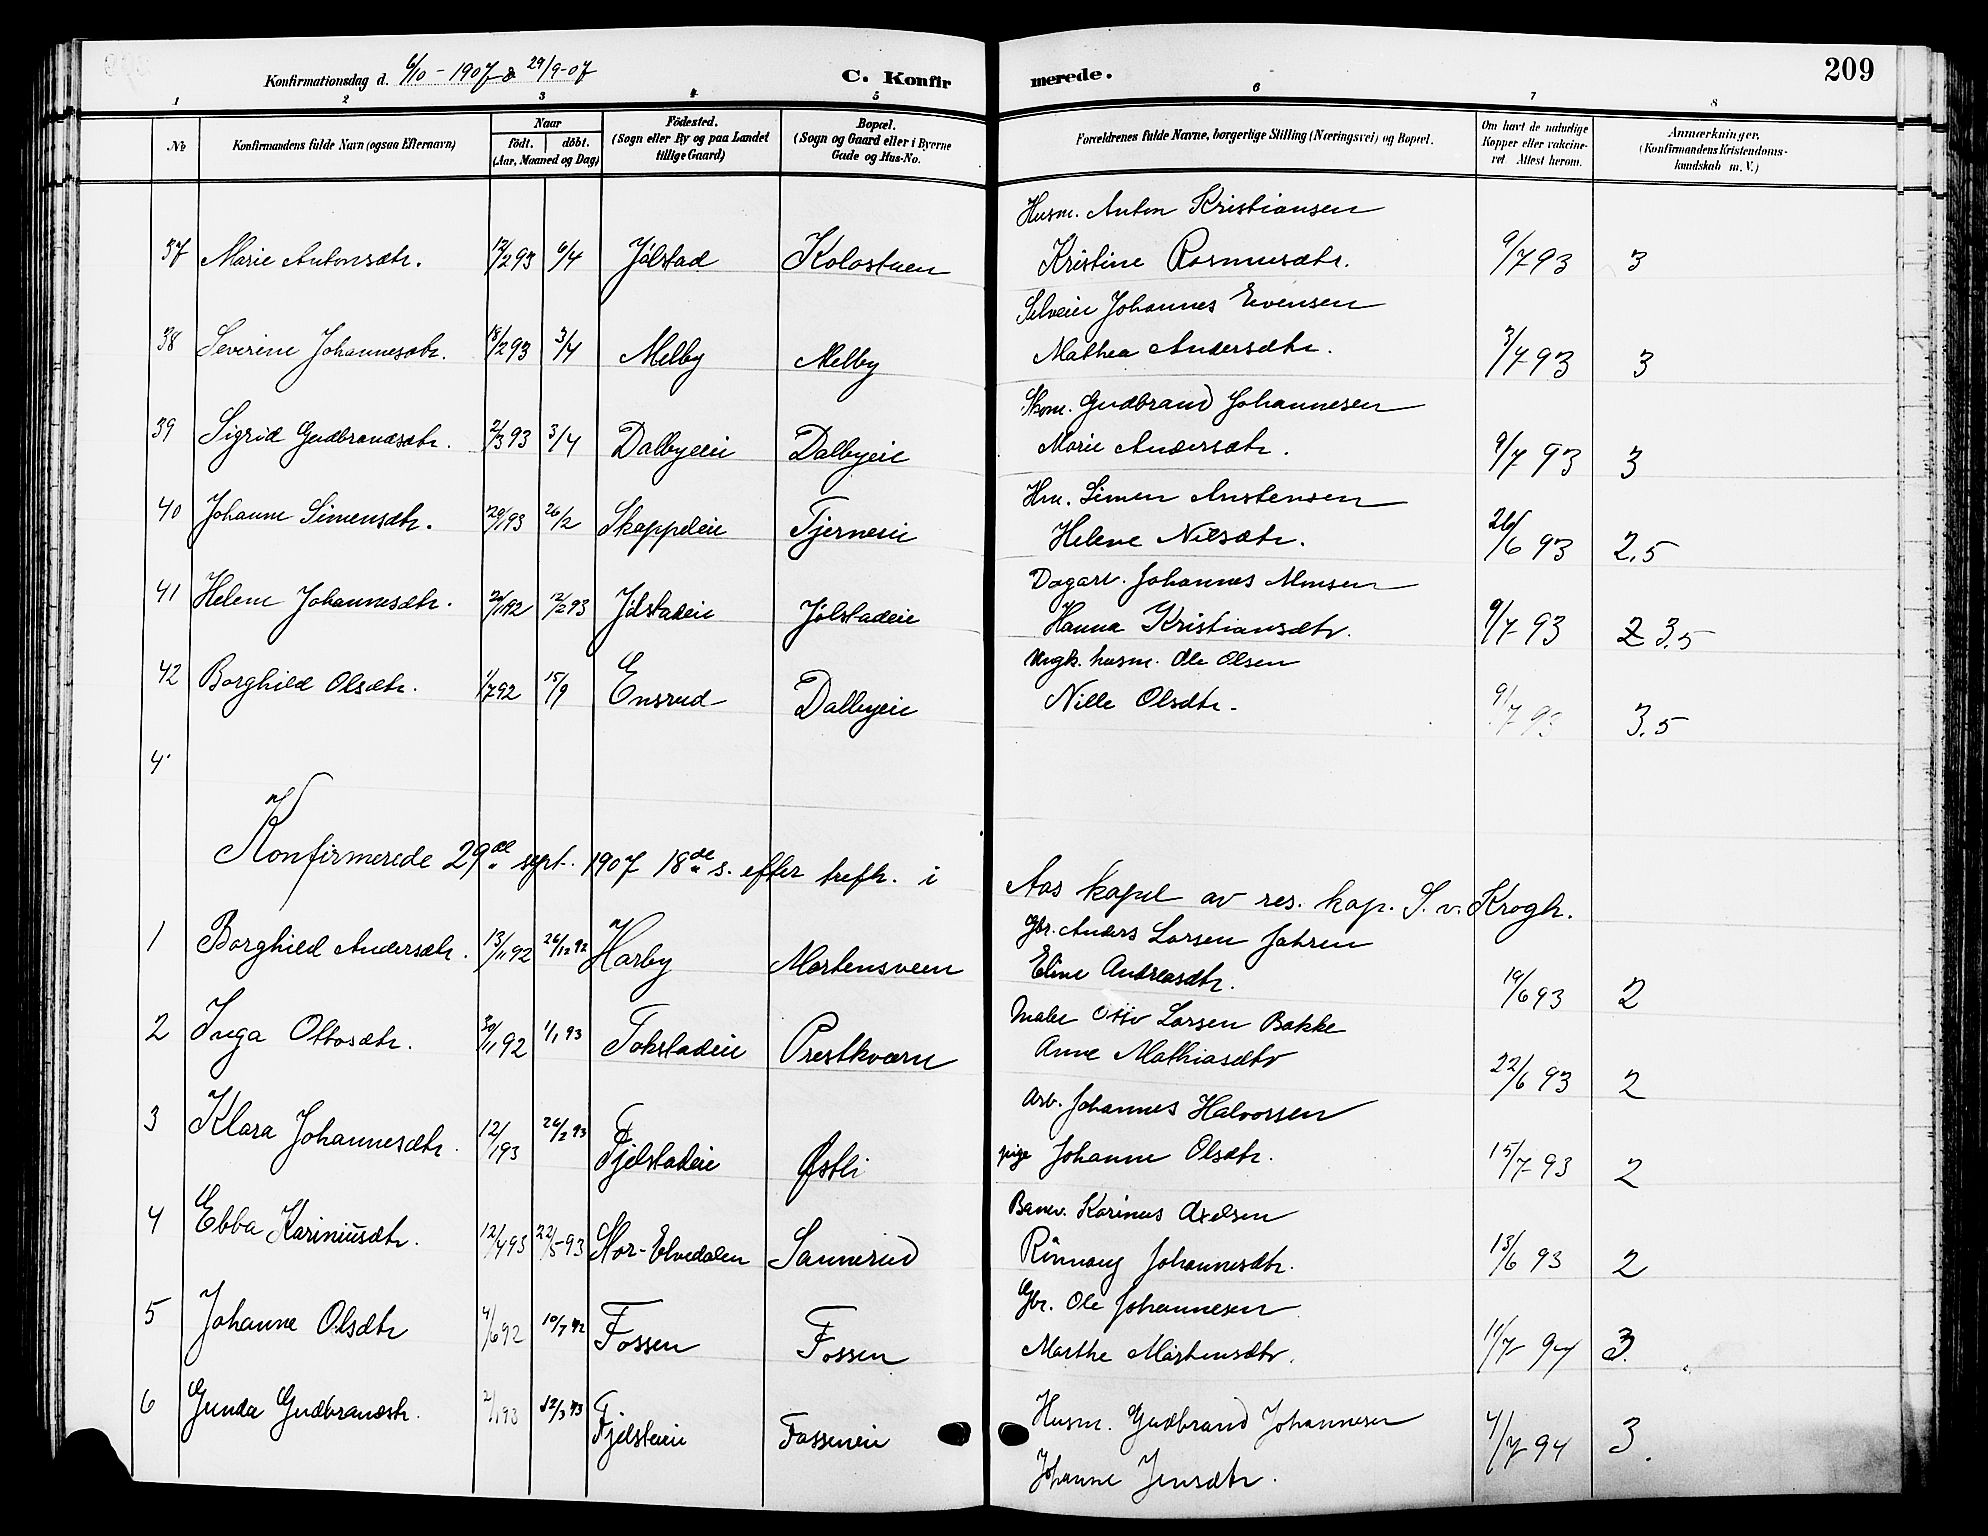 209
Konfirmationsdag d. 6/10 - 1907 & 29/9-07 C. Konfirmerede.
1 2 3 4 5 6 7 8
No Konfirmandens fulde Navn (ogsaa Efternavn) Naar födt. döbt. (Aar, Maaned og Dag) Födested. (Sogn eller By og paa Landet tillige Gaard) Bopæl. (Sogn og Gaard eller i Byerne Gade og Hus-No. Forældrenes fulde Navne, borgerlige Stilling (Næringsvei) og Bopæl. Om havt de naturlige Kopper eller vakcineret. Attest herom. Anmærkninger. (Konfirmandens Kristendomskundskab m. V.)
Husm. Anton Kristiansen
37 Marie Antonsdtr. 12/2 93 6/4 Jølstad Kolostuen Kristine Rasmusdtr. 9/7 93 3
Selveier Johannes Evensen
38 Severine Johannesdtr. 18/2 93 3/4 Melby Melby Mathea Andersdtr. 3/7 93 3
Skom. Gudbrand Johannesen
39 Sigrid Gudbrandsdtr. 2/3 93 3/4 Dalbyeie Dalbyeie Marie Andersdtr. 9/7 93 3
Hm. Simen Anstensen
40 Johanne Simensdtr. 20/1 93 26/2 Skappeleie Tjerneseie Helene Nilsdtr. 26/6 93 2,5
Dagarb. Johannes
41 Helene Johannesdtr. 12/2 93 Jølstadeie Jølstadeie Hanna Kristiansdtr. 9/7 93 2 3,5
Ungk. husm. Ole Olsen
42 Borghild Olsdtr. 1/7 92 15/9 Ensrud Dalbyeie Nille Olsdtr. 9/7 93 3,5
4
Konfirmerede 29de sept. 1907 18de s. efter trefh. i Aas kapel av res. kap. S. v. Krogh.
Gbr. Anders Larsen Jahren
1 Borghild Andersdtr. 13/11 92 26/12 92 Harby Martensveen Eline Andreasdtr. 19/6 93 2
Maler Otto Larsen Bakke
2 Inga Ottosdtr. 30/11 92 1/1 93 Tokstadeie Prestkværn Anne Mathiasdtr 22/6 93 2
Arb. Johannes Halvorsen
3 Klara Johannesdtr. 12/1 93 26/2 93 Fjelstadeie Østli pige Johanne Olsdtr. 15/7 93 2
Banev. Karinus Axelsen
4 Ebba Kariniusdtr. 12/4 93 22/5-93 Stor-Elvedalen Sannerud Rönnaug Johannesdtr. 13/6 93 2
Gbr. Ole Johannesen
5 Johanne Olsdtr 4/6 92 10/7 92 Fossen Fossen Marthe Martensdtr. 11/7 94 3.
6 Gunda Gudbrandsdtr. 2/1 93 12/3 93 Fosseneie Husm. Gudbrand Johannesen 4/7 94 3.
Johanne Jensdtr.